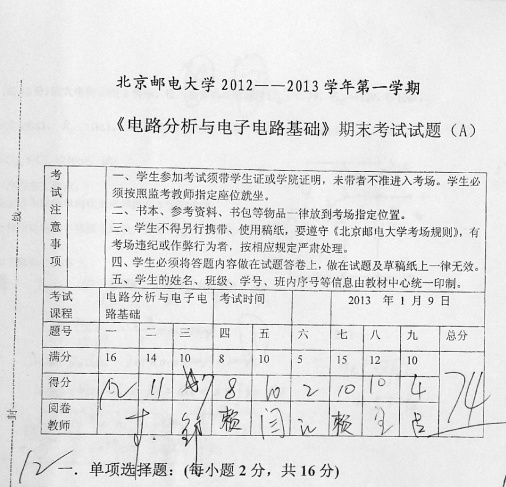 北京邮电大学 2012——2013 学年第一学期
《电路分析与电子电路基础》期末考试试题（A）
考试注意事项
一、学生参加考试须带学生证或学院证明，未带者不准进入考场。学生必
须按照监考教师指定座位就坐。
二、书本、参考资料、书包等物品一律放到考场指定位置。
三、学生不得另行携带、使用稿纸，要遵守《北京邮电大学考场规则》，有
考场违纪或作弊行为者，按相应规定严肃处理。
四、学生必须将答题内容做在试题答卷上，做在试题及草稿纸上一律无效。
五、学生的姓名、班级、学号、班内序号等信息由教材中心统一印制。
考试课程 电路分析与电子电路基础 考试时间 2013 年 1 月 9 日
题号 一 二 三 四 五 六 七 八 九 总分
满分 16 14 10 8 10 5 15 12 10
得分 12 11 7 8 10 2 10 10 4 74
阅卷教师 赖 闫 赖
12 一. 单项选择题：(每小题 2 分，共 16 分)
封